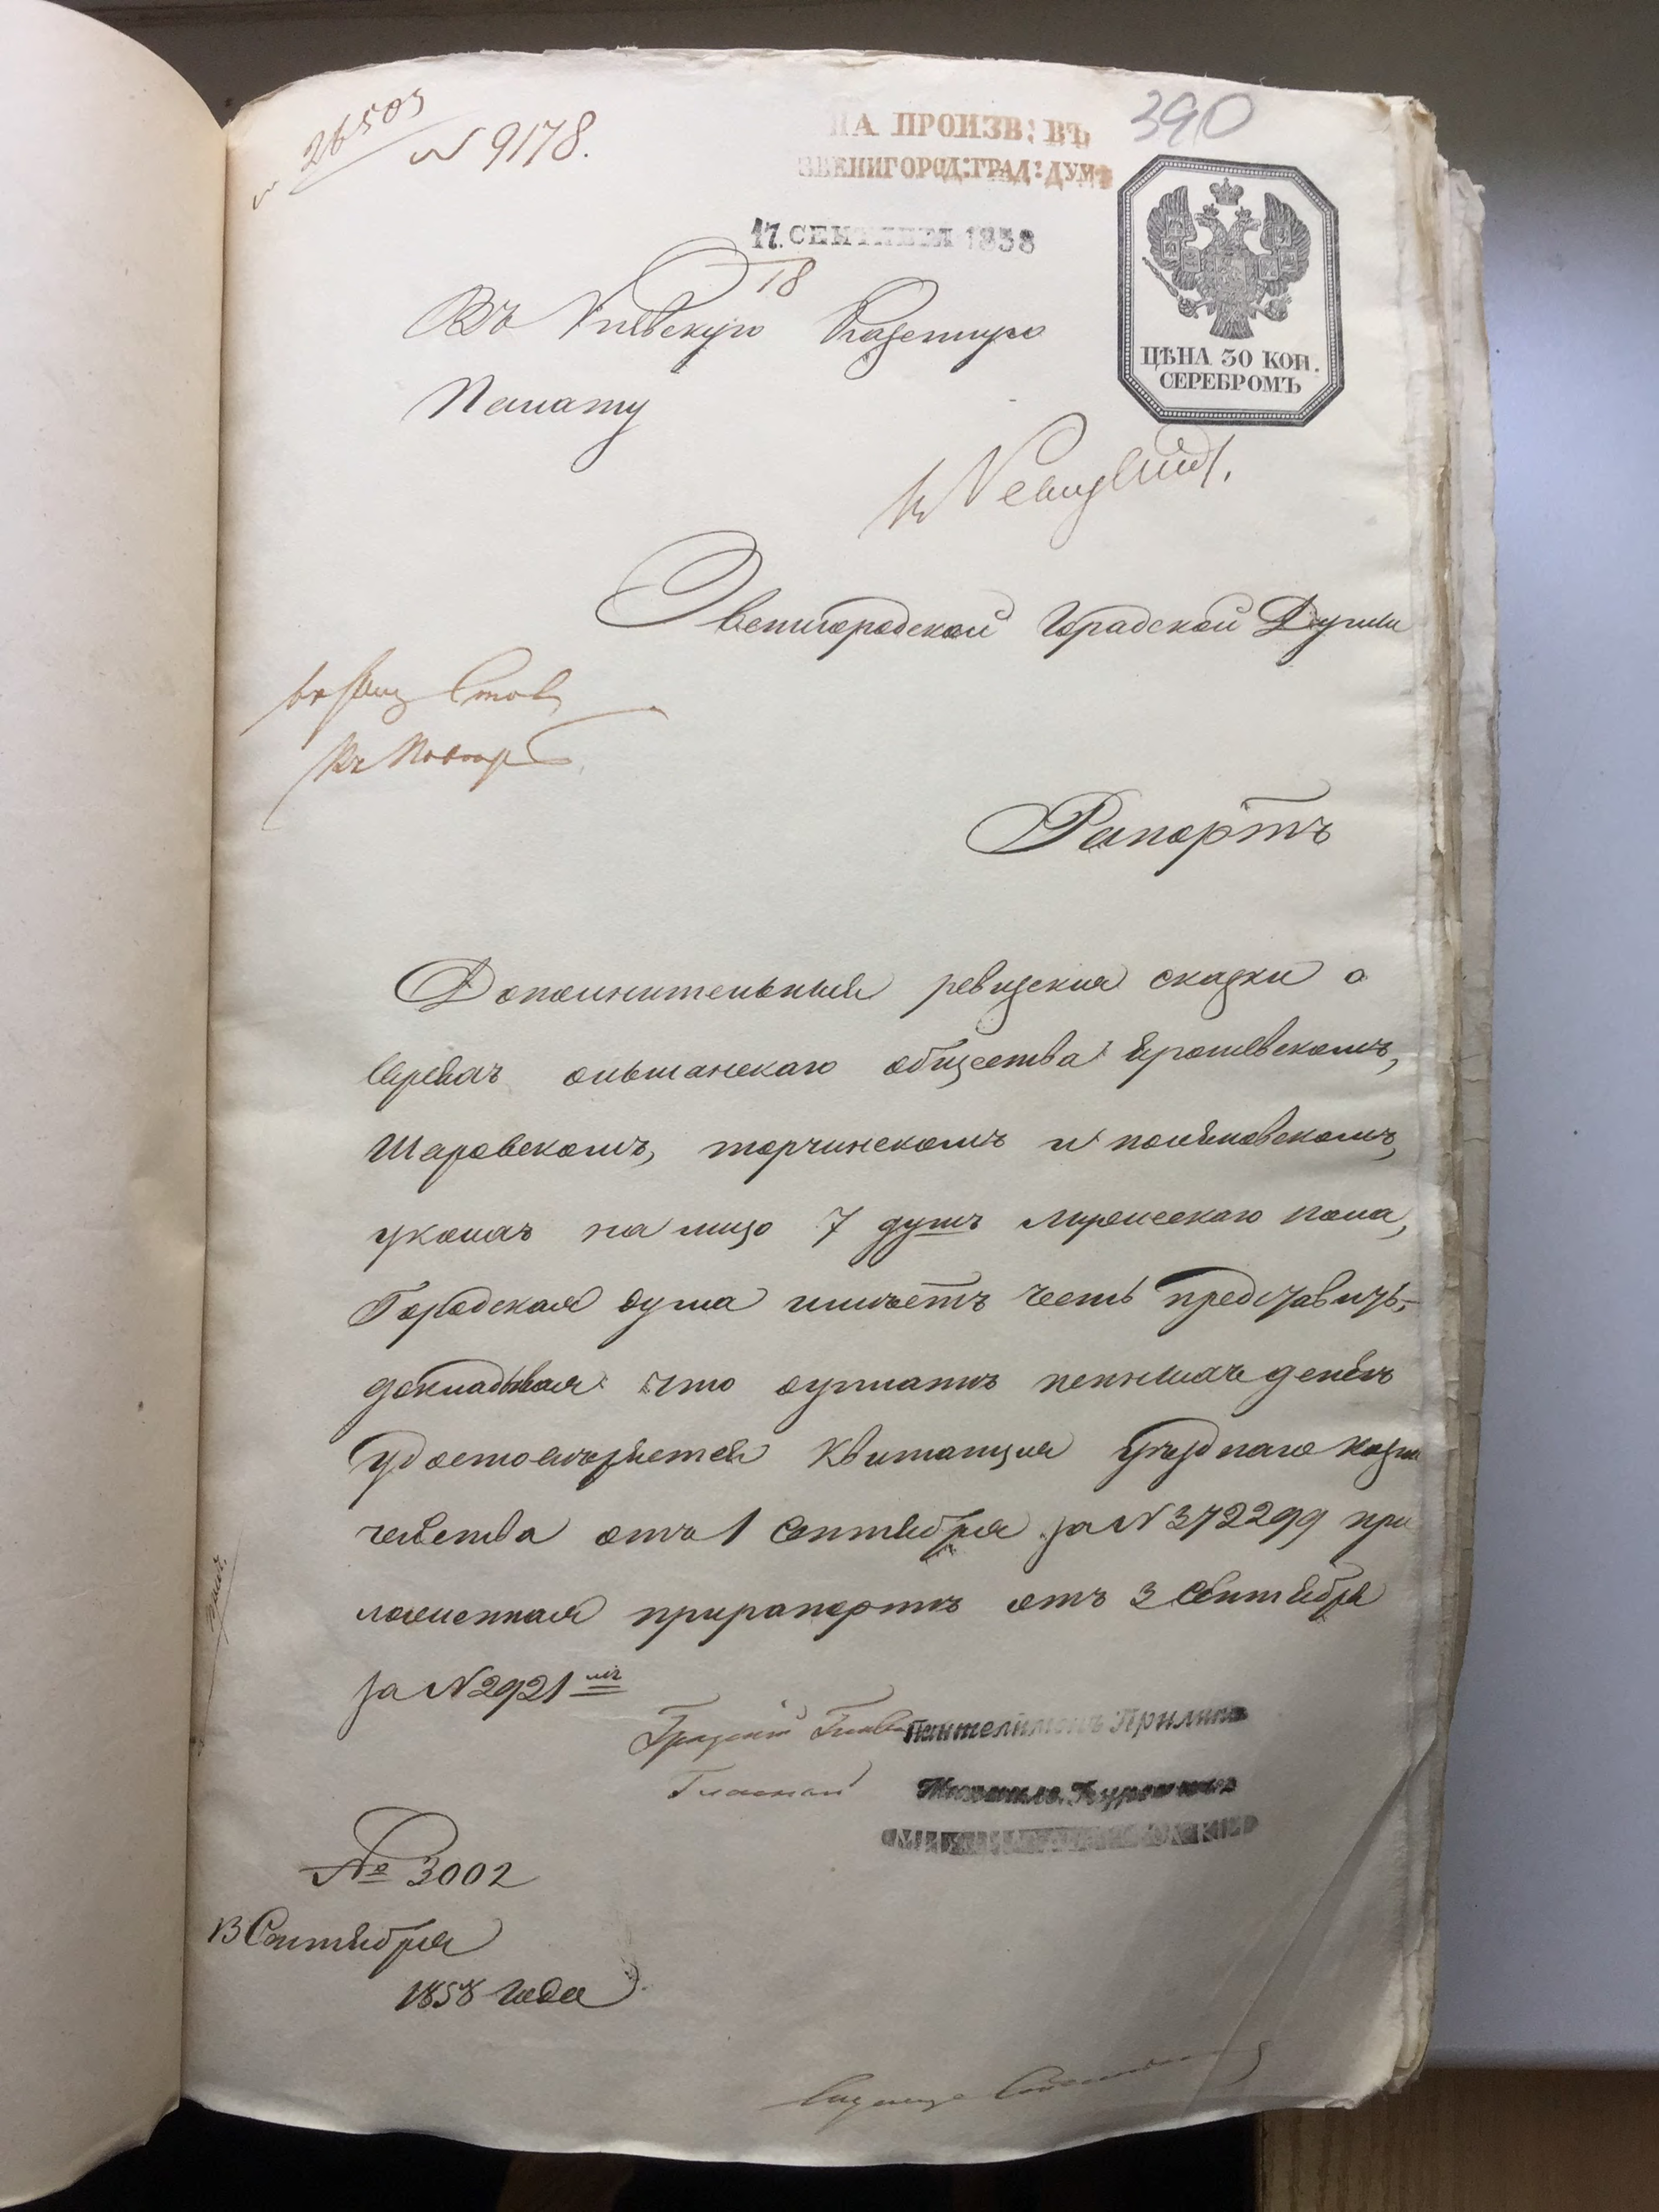 26503
N 9178.
НА ПРОИЗВ: ВЪ
ЗВЕНИГОРОД:ГРАД:ДУМѢ
390
17. СЕНТЯБРЯ 1858
18
ЦѢНА 30 КОП.
СЕРЕБРОМЪ
Въ Кіевскую Казенную
Палату
Звенигородской Городской Думы
Рапортъ
Дополнительныя ревизскія сказки о
Евреяхъ ольшанскаго общества
Шаровскомъ, торчинскомъ и
на лицо 7 душъ мужескаго пола,
Городская дума имѣетъ честь представить,
докладывая что пенныхъ денегъ
удостовѣряется Квитанция Уѣзднаго Казна
чейства отъ 1 Сентября за N 372299 при
ложенная прирапортѣ отъ 3 Сентября
за N 2921мъ
Градскій Глава Пантелимонъ Прилипа
Гласный
№ 3002
13 Сентября
1858 года